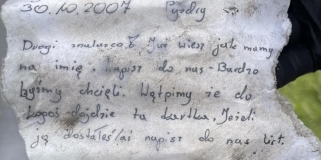 30.10.2007 Pyzdry
Drogi znalazco. Już wiesz jak mamy
na imię. Napisz do nas. Bardzo
byśmy chcieli. Wątpimy że do
kogoś dojdzie ta kartka. Jeżeli
ją dostałeś/aś napisz do nas list.